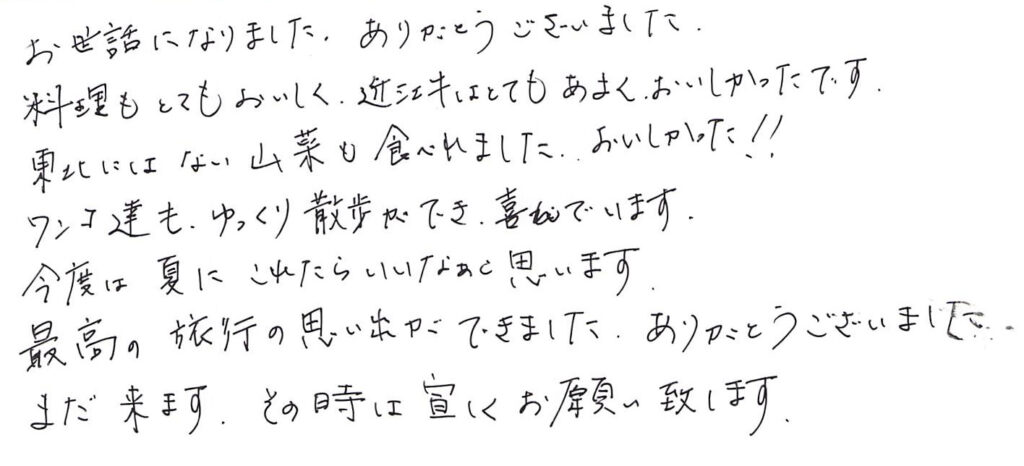 お世話になりました。ありがとうございました。
料理もとてもおいしく、近江牛はとてもあまく、おいしかったです。
東北にはない山菜も食べれました。おいしかった!!
ワンコ達も、ゆっくり散歩ができ、喜んでいます。
今度は夏にこれたらいいなぁと思います。
最高の旅行の思い出ができました。ありがとうございました。
まだ来ます。その時は宜しくお願い致します。